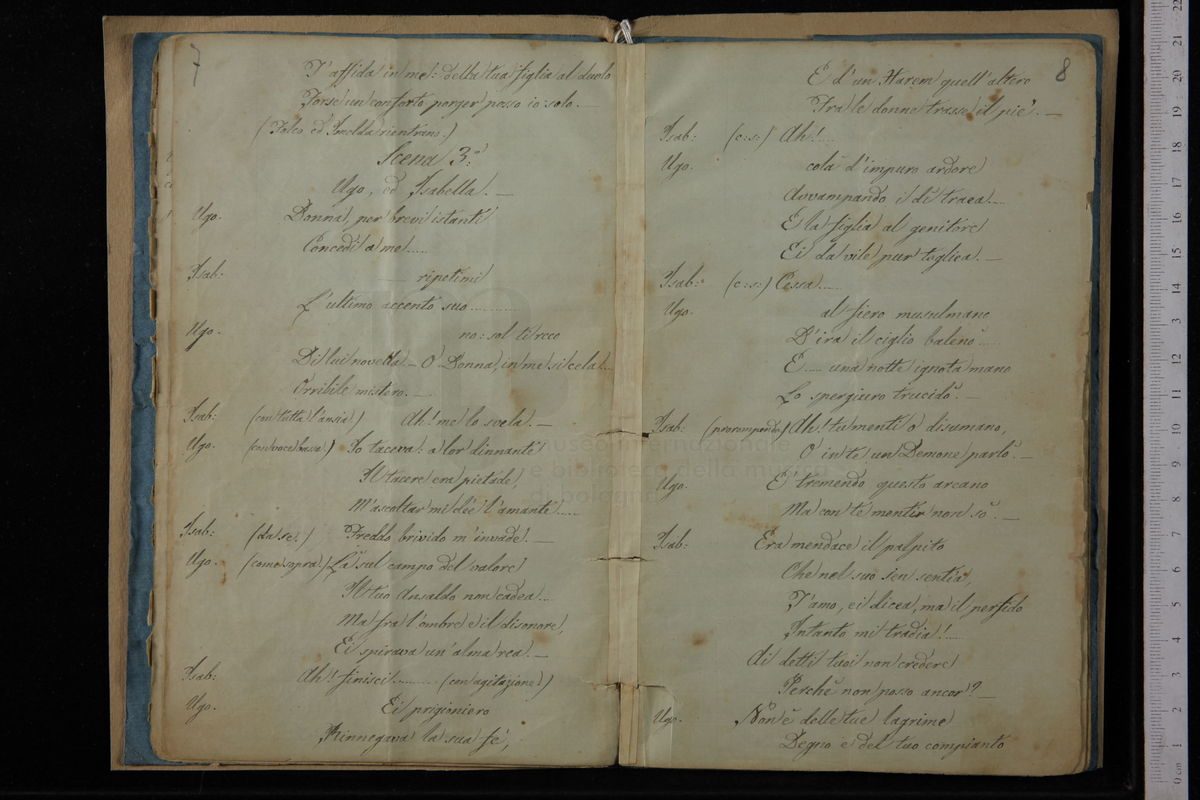 7
T'affida in me: della tua figlia al duolo
Forse un conforto porger posso io solo. —
(Falco ed Imelda rientrino.)
Scena 3.a
Ugo, ed Isabella. —
Ugo. Donna, per brevi istanti
Concedi a me.....
Isab: ripetimi
L'ultimo accento suo...........
Ugo. no: sol ti reco
Di lui novella — O Donna, in me si cela...
Orribile mistero. —
Isab: (con tutta l'ansia.) Ah! me lo svela. —
Ugo. (con voce bassa.) Io taceva: a lor dinnanti
Il tacere era pietade,
M'ascoltar mi diè l'amante.....
Isab: (da se.) Freddo brivido m'invade. —
Ugo. (come sopra.) Là sul campo del valore
Il tuo Ansaldo non cadea...
Ma fra l'ombre e il disonore,
Ei spirava un'alma rea. —
Isab: Ah! finisci......... (con agitazione.)
Ugo. Ei prigioniero
Rinnegava la sua fé,
8
E d'un Harem quell'altero
Tra le donne trasse il piè. —
Isab: (c:s:) Ah!....
Ugo. colà d'impuro ardore
Avvampando i dì traea....
E la figlia al genitore
Ei da vile pur toglica. —
Isab: (c:s:) Cessa.....
Ugo. al fiero musulmano
D'ira il ciglio balenò.....
E.... una notte ignota mano
Lo spergiuro trucidò. —
Isab: (prorompendo) Ah! tu menti o disumano,
O in te un Demone parlò. —
Ugo. E' tremendo questo arcano
Ma con te mentir non sò. —
Isab: Era mendace il palpito
Che nel suo sen sentia,
T'amo, ei dicea, ma il perfido
Intanto mi tradia!....
Ai detti tuoi non credere
Perchè non posso ancor? —
Ugo. Non è delle tue lagrime
Degno e del tuo compianto
museo internazionale
e biblioteca della musica
di bologna